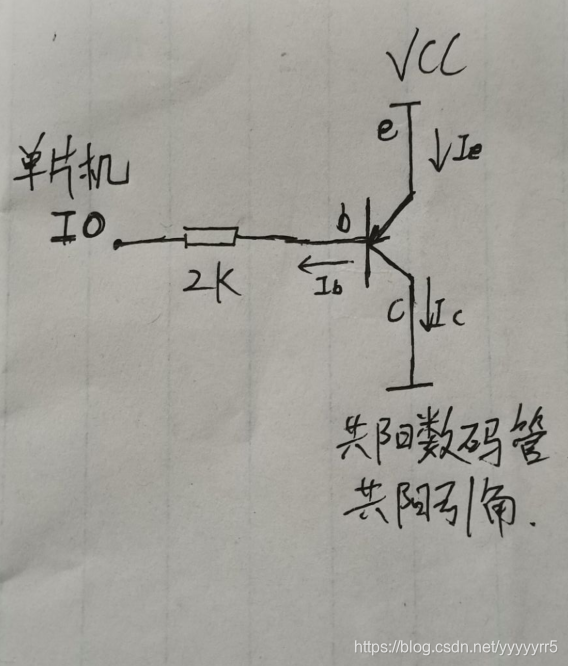 VCC
e
Ie
单片机
IO
b
2K
Ib
c
Ic
共阳数码管
共阳引角.
https://blog.csdn.net/yyyyyrr5